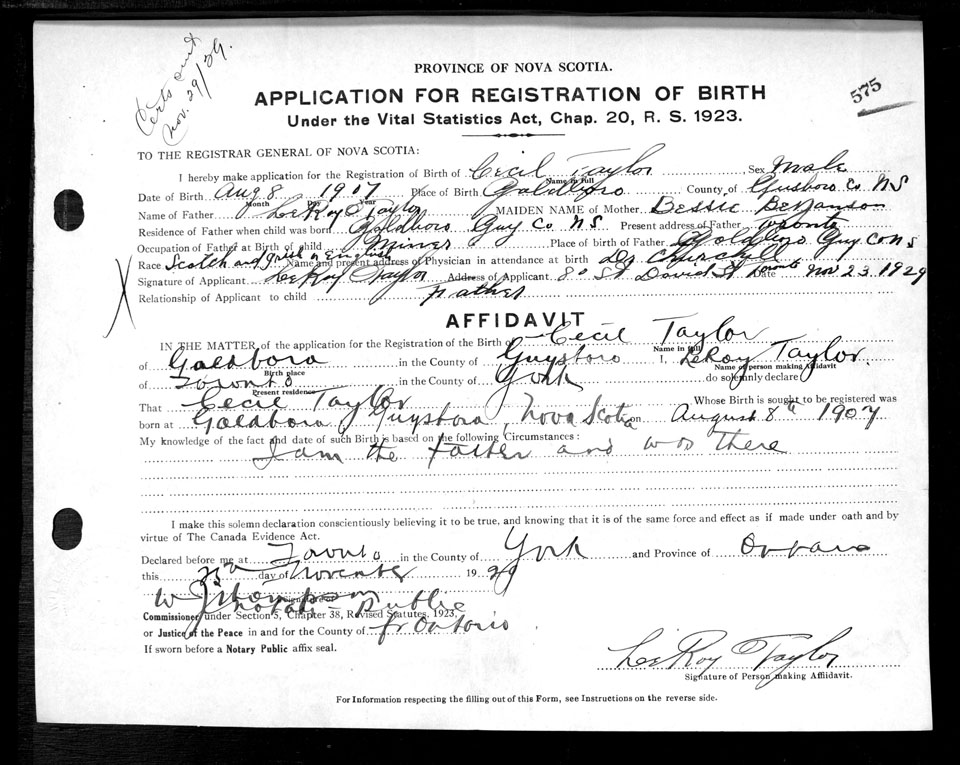 Certs sent
Nov. 29/29.
575
PROVINCE OF NOVA SCOTIA.
APPLICATION FOR REGISTRATION OF BIRTH
Under the Vital Statistics Act, Chap. 20, R. S. 1923.
TO THE REGISTRAR GENERAL OF NOVA SCOTIA:
I hereby make application for the Registration of Birth of Cecil Taylor Sex Male
Name in full
Date of Birth Aug 8 1907 Place of Birth Goldboro County of Guysboro Co NS
Month Day Year
Name of Father LeRoy Taylor MAIDEN NAME of Mother Bessie Bezanson
Residence of Father when child was born Goldboro Guy Co NS Present address of Father Toronto
Occupation of Father at Birth of child Miner Place of birth of Father Goldboro Guy Co NS
Race Scotch and Irish or English Name and present address of Physician in attendance at birth Dr Churchill
Signature of Applicant LeRoy Taylor Address of Applicant 80 St David St Toronto Date Nov 23 1929
Relationship of Applicant to child Father
AFFIDAVIT
IN THE MATTER of the application for the Registration of the Birth of Cecil Taylor
Name in full
of Goldboro in the County of Guysboro I, LeRoy Taylor
Birth place Name of person making Affidavit
of Toronto in the County of York do solemnly declare
Present residence
That Cecil Taylor Whose Birth is sought to be registered was
born at Goldboro Guysboro, Nova Scotia on August 8th 1907
My knowledge of the fact and date of such Birth is based on the following Circumstances:
I am the Father and was there
I make this solemn declaration conscientiously believing it to be true, and knowing that it is of the same force and effect as if made under oath and by
virtue of The Canada Evidence Act.
Declared before me at Toronto in the County of York and Province of Ontario
this day of November 1929
W J Thompson
Notary Public
Commissioner under Section 5, Chapter 38, Revised Statutes, 1923,
or Justice of the Peace in and for the County of fr Ontario
If sworn before a Notary Public affix seal.
LeRoy Taylor
Signature of Person making Affidavit.
For Information respecting the filling out of this Form, see Instructions on the reverse side.